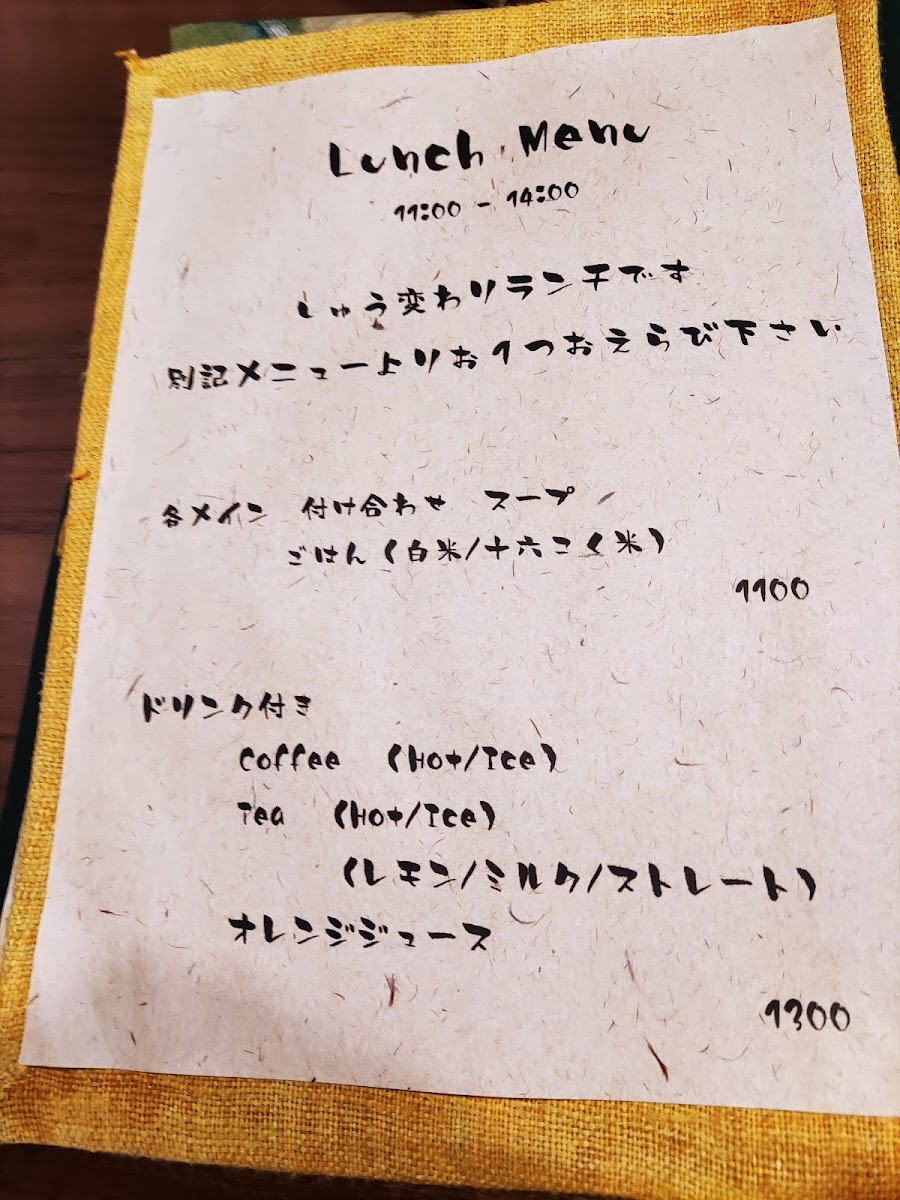 Lunch Menu
11:00 - 14:00
しゅう変わりランチです
別記メニューよりお1つおえらび下さい
各メイン 付け合わせ スープ
ごはん(白米/十六こく米)
1100
ドリンク付き
Coffee (Hot/Ice)
Tea (Hot/Ice)
(レモン/ミルク/ストレート)
オレンジジュース
1300